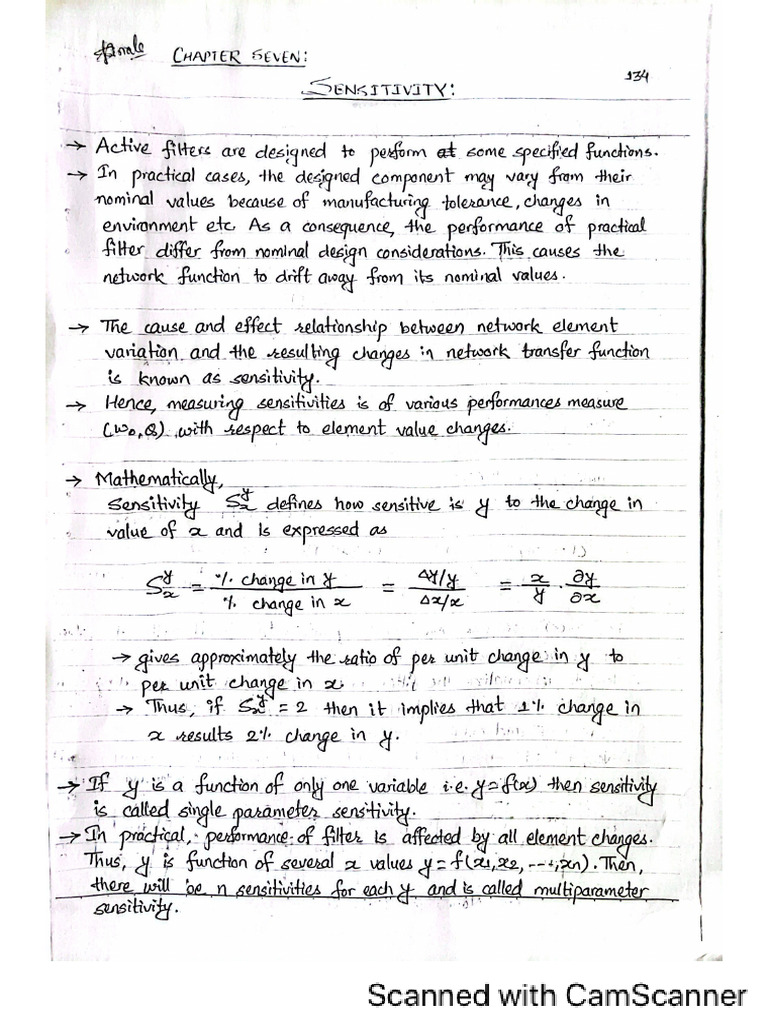 CHAPTER SEVEN:
134
SENSITIVITY:
→ Active filters are designed to perform at some specified functions.
→ In practical cases, the designed component may vary from their
nominal values because of manufacturing tolerance, changes in
environment etc. As a consequence, the performance of practical
filter differ from nominal design considerations. This causes the
network function to drift away from its nominal values.
→ The cause and effect relationship between network element
variation and the resulting changes in network transfer function
is known as sensitivity.
→ Hence, measuring sensitivities is of various performances measure
(ω₀, Q) with respect to element value changes.
→ Mathematically,
Sensitivity Sₓʸ defines how sensitive is y to the change in
value of x and is expressed as
Sₓʸ = % change in y / % change in x = Δy/y / Δx/x = x/y · ∂y/∂x
→ gives approximately the ratio of per unit change in y to
per unit change in x.
→ Thus, if Sₓʸ = 2 then it implies that 1% change in
x results 2% change in y.
→ If y is a function of only one variable i.e. y=f(x) then sensitivity
is called single parameter sensitivity.
→ In practical, performance of filter is affected by all element changes.
Thus, y is function of several x values y=f(x1,x2,---,xn). Then,
there will be n sensitivities for each y and is called multiparameter
sensitivity.
Scanned with CamScanner